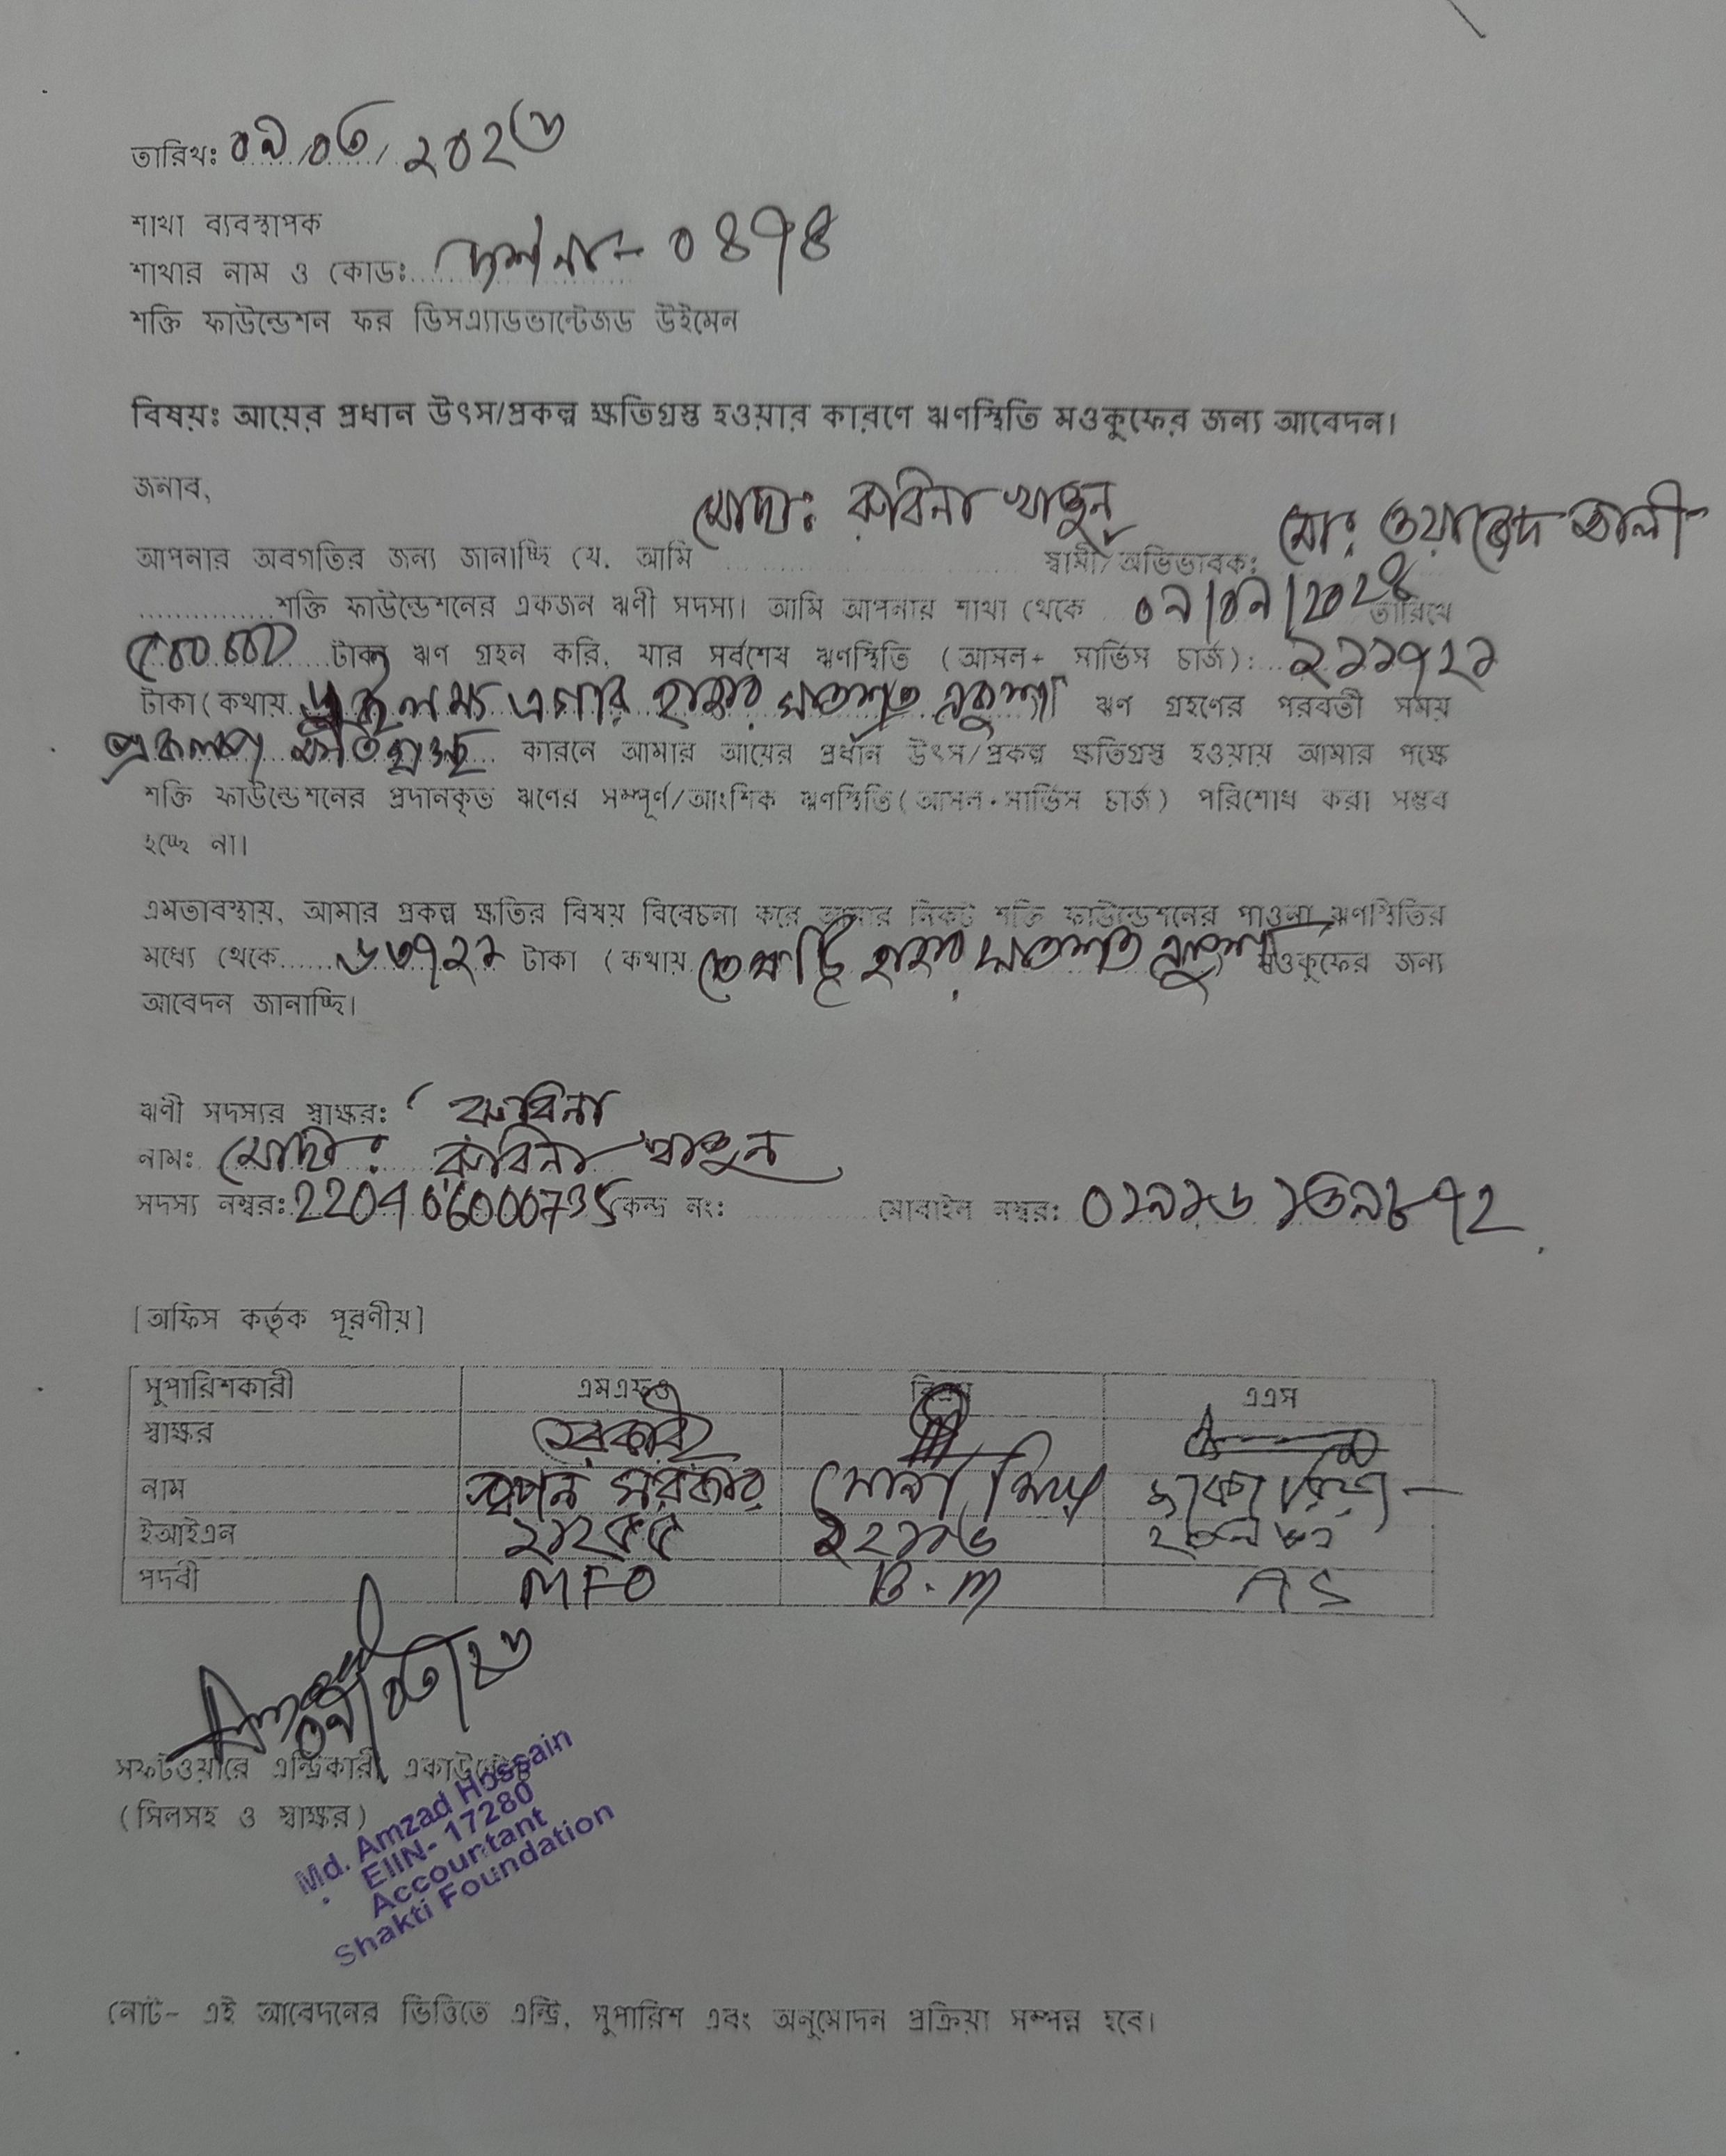 তারিখঃ ০৯/০৩/২০২৬
শাখা ব্যবস্থাপক
শাখার নাম ও কোডঃ দর্শনা- ০৪৭৪
শক্তি ফাউন্ডেশন ফর ডিসএ্যাডভান্টেজড উইমেন
বিষয়ঃ আয়ের প্রধান উৎস/প্রকল্প ক্ষতিগ্রস্ত হওয়ার কারণে ঋণস্থিতি মওকুফের জন্য আবেদন।
জনাব,
আপনার অবগতির জন্য জানাচ্ছি যে, আমি মোছাঃ রুবিনা খাতুন স্বামী/অভিভাবক: মোঃ ওয়াজেদ আলী
শক্তি ফাউন্ডেশনের একজন ঋণী সদস্য। আমি আপনার শাখা থেকে ০৭/০৭/২০২৪ তারিখে
৫০০০০০ টাকা ঋণ গ্রহন করি, যার সর্বশেষ ঋণস্থিতি (আসল+ সার্ভিস চার্জ): ২১১৭২১
টাকা(কথায় দুইলক্ষ্য এগার হাজার সাতশত একুশ) ঋণ গ্রহণের পরবর্তী সময়
প্রকল্প ক্ষতিগ্রস্ত কারনে আমার আয়ের প্রধান উৎস/প্রকল্প ক্ষতিগ্রস্ত হওয়ায় আমার পক্ষে
শক্তি ফাউন্ডেশনের প্রদানকৃত ঋণের সম্পূর্ণ/আংশিক ঋণস্থিতি(আসল+সার্ভিস চার্জ) পরিশোধ করা সম্ভব
হচ্ছে না।
এমতাবস্থায়, আমার প্রকল্প ক্ষতির বিষয় বিবেচনা করে আমার নিকট শক্তি ফাউন্ডেশনের পাওনা ঋণস্থিতির
মধ্যে থেকে ৬৩৭২১ টাকা (কথায় তেষট্টি হাজার সাতশত একুশ) মওকুফের জন্য
আবেদন জানাচ্ছি।
ঋণী সদস্যর স্বাক্ষর: রুবিনা
নাম: মোছাঃ রুবিনা খাতুন
সদস্য নম্বর: 220406000735 কেন্দ্র নং: মোবাইল নম্বর: ০১৯১৬১৩৯৮৭২
[অফিস কর্তৃক পূরণীয়]
সুপারিশকারী এমএফও বিএম এএস
স্বাক্ষর সরকার
নাম স্বপন সরকার সোনা মিয়া
ইআইএন ২১২৫৫ ২২১১৬
পদবী MFO B.M AS
০৯/০৩/২৬
সফটওয়ারে এন্ট্রিকারী একাউন্টেন্ট
(সিলসহ ও স্বাক্ষর)
Md. Amzad Hossain
EIIN- 17280
Accountant
Shakti Foundation
নোট- এই আবেদনের ভিত্তিতে এন্ট্রি, সুপারিশ এবং অনুমোদন প্রক্রিয়া সম্পন্ন হবে।